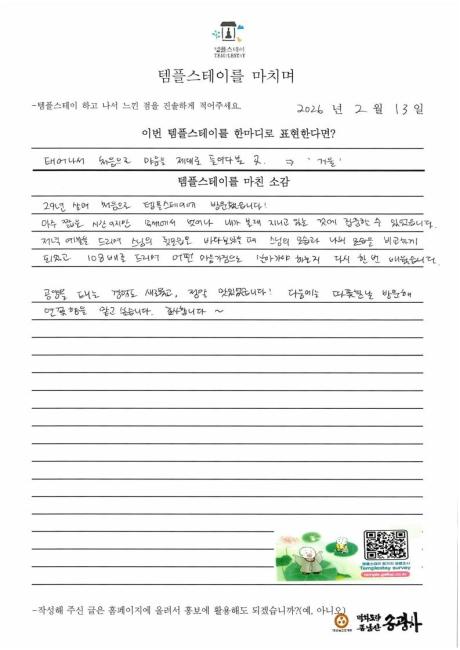 템플스테이
TEMPLESTAY
템플스테이를 마치며
-템플스테이 하고 나서 느낀 점을 진솔하게 적어주세요.
2026 년 2 월 13 일
이번 템플스테이를 한마디로 표현한다면?
태어나서 처음으로 마음을 제대로 들여다본 곳. ⇒ '거울'
템플스테이를 마친 소감
29년 살며 처음으로 템플스테이에 방문했습니다!
아주 짧은 시간이지만 벗어나 내가 본래 지니고 있는 것에 집중할 수 있었습니다.
저녁 예불을 드리며 스님의 뒷모습을 바라보았을 때 스님의 모습과 나의 모습을 비교하게
되었고 108배를 드리며 어떤 마음가짐으로 살아가야 하는지 다시 한 번 배웠습니다.
공양을 때는 경험도 새롭고, 정말 맛있었습니다! 다음에는 따뜻한날 방문해
연꽃향을 맡고 싶습니다. 감사합니다 ~
템플스테이 참가자 설문조사
Templestay survey
-작성해 주신 글은 홈페이지에 올려서 홍보에 활용해도 되겠습니까?(예, 아니오)
종남산 송광사